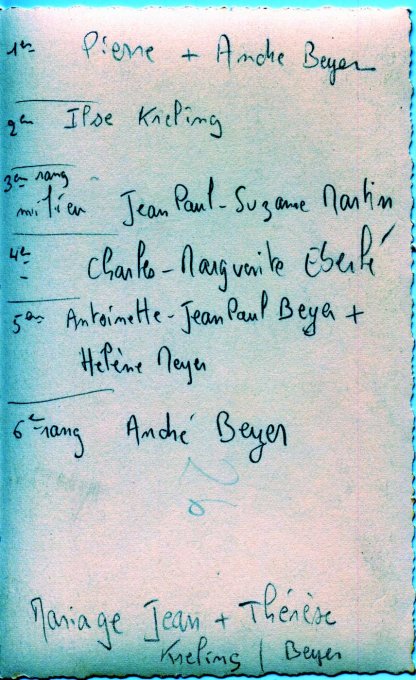 1er Pierre + André Beyer
2em Ilse Kieling
3em rang
milieu Jean Paul - Suzanne Martin
4em Charles - Marguerite Eberlé
5em Antoinette - Jean Paul Beyer +
Hélène Meyer
6e rang André Beyer
26
Mariage Jean + Thérèse
Kieling / Beyer